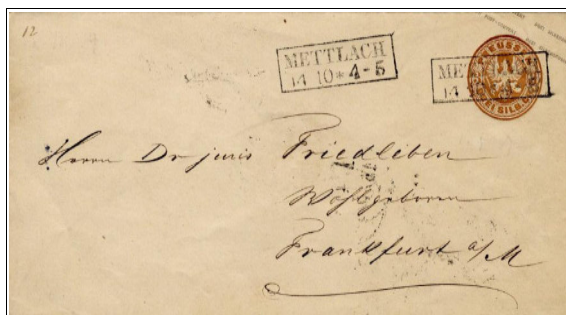 12
METTLACH
14 10 * 4-5
Herrn Dr juris Friedleben
Wohlgeboren
Frankfurt a/M